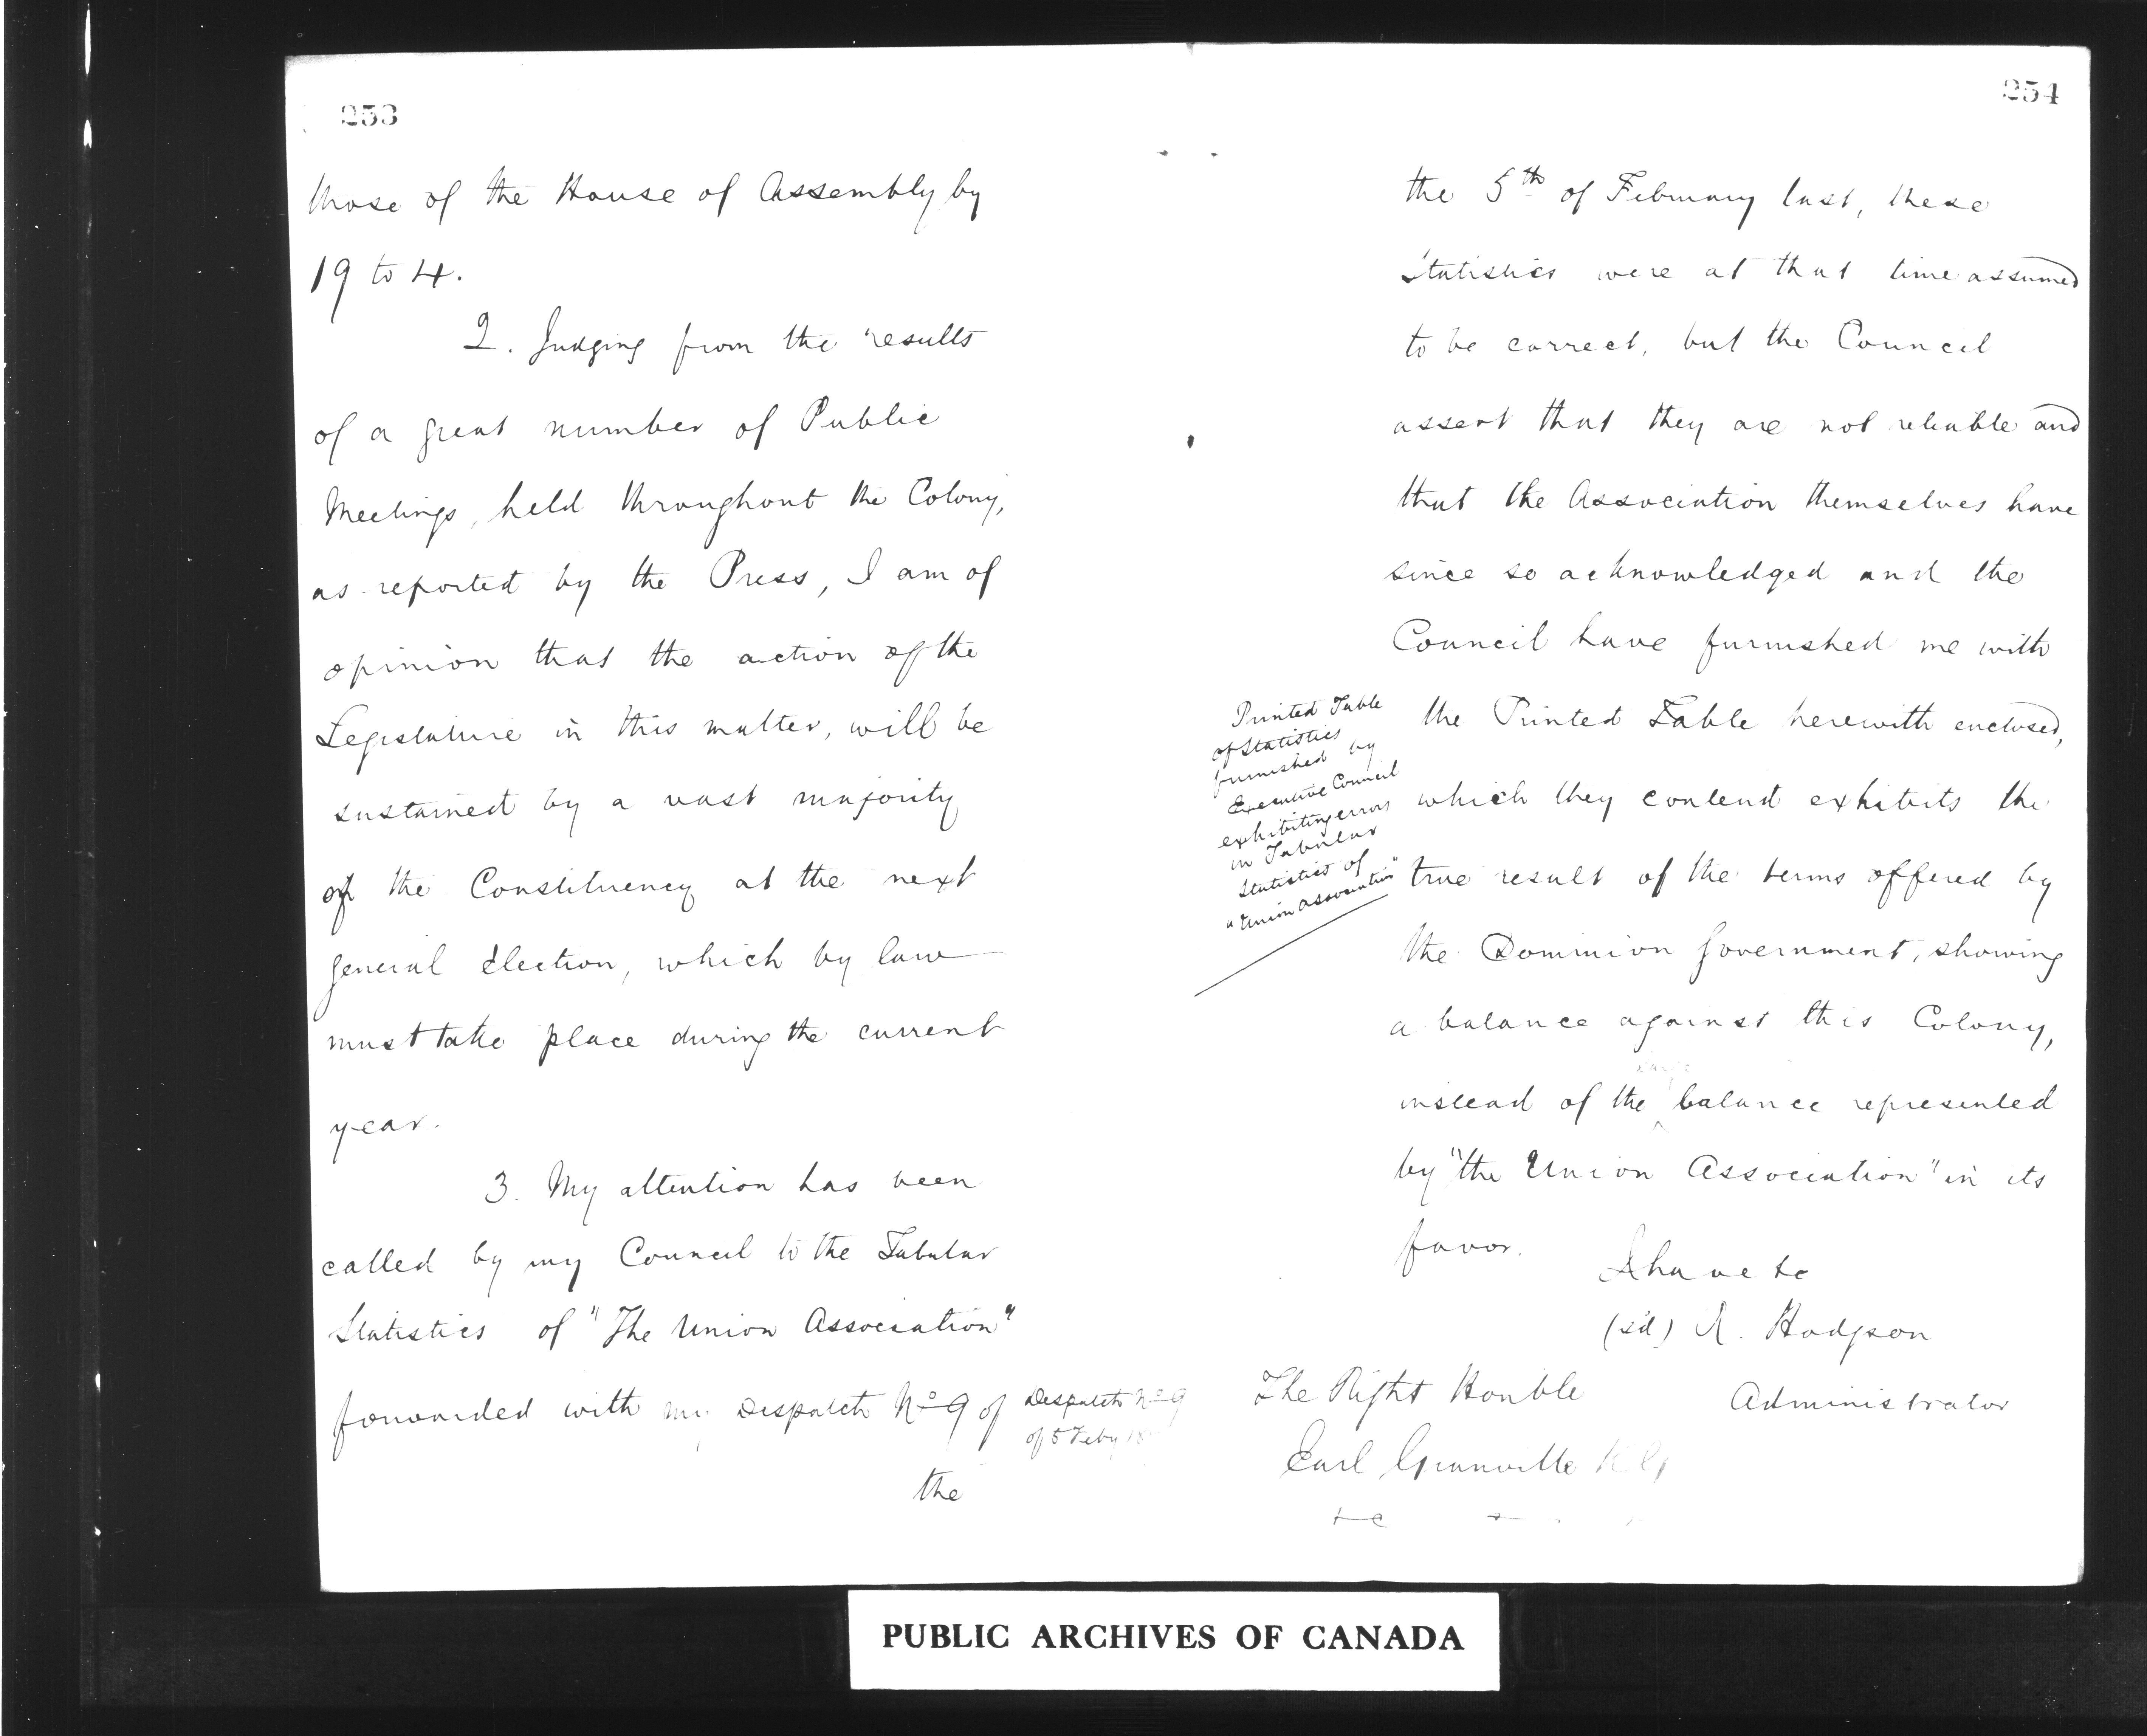 253
those of the House of Assembly by
19 to 4.
2. Judging from the results
of a great number of Public
Meetings, held throughout the Colony,
as reported by the Press, I am of
opinion that the action of the
Legislature in this matter, will be
sustained by a vast majority
of the Constituency at the next
general election, which by law
must take place during the current
year.
3. My attention has been
called by my Council to the Tabular
Statistics of "The Union Association"
forwarded with my Despatch No 9 of
Despatch No 9
of 5 Feby
the
254
the 5th of February last, these
Statistics were at that time assumed
to be correct, but the Council
assert that they are not reliable and
that the Association themselves have
since so acknowledged and the
Council have furnished me with
the Printed Table herewith enclosed,
which they contend exhibits the
true result of the terms offered by
the Dominion Government, showing
a balance against this Colony,
instead of the large balance represented
by "the Union Association" in its
favor.
Printed Table
of Statistics
furnished by
Executive Council
exhibiting errors
in Tabular
Statistics of
"Union Association"
I have &c
(sd) R. Hodgson
Administrator
The Right Honble
Earl Granville K G
&c
PUBLIC ARCHIVES OF CANADA